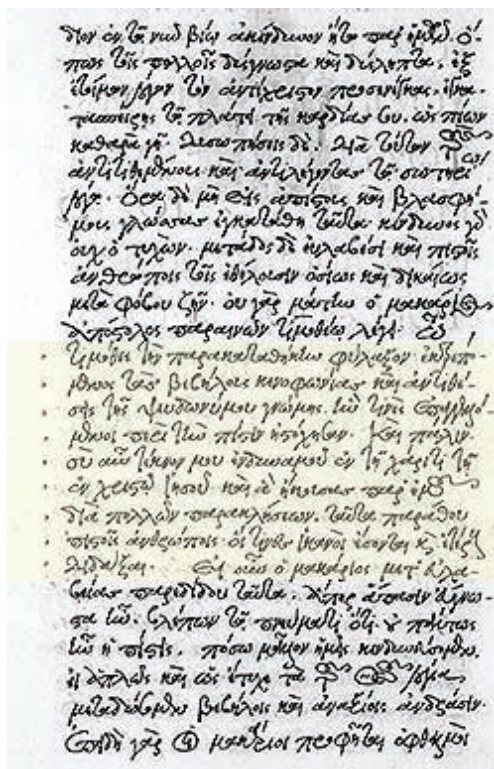 ἐν τῷ νῦν βίῳ ἀκίνδυνον ᾖ τὸ παρ' ἡμῶν. ὅ-
πως τοῖς πολλοῖς καὶ ἐξ
ἑτοίμου τὸν
τῷ πλάτει τῆς καρδίας σου. ὡς πίων
καθαρὰ γῆ. δὲ. διὰ τούτων
καὶ ἀντιλέγοντας τῷ σωτηρίῳ
λόγῳ. Ὅρα δὲ μὴ ἀπίστοις καὶ βλασφή-
μοις γλώσσαις ἐγκαταθῇ ταῦτα. κίνδυνος γὰρ
οὐχ ὁ τυχών. μετάδος δὲ εὐλαβέσι καὶ πιστοῖς
ἀνθρώποις τοῖς ἐθέλουσιν ὁσίως καὶ δικαίως
μετὰ φόβου ζῆν. οὐ γὰρ μάτην ὁ μακάριος
ἀπόστολος παραινῶν τιμοθέῳ λέγει. ὦ
τιμόθεε τὴν παρακαταθήκην φύλαξον. ἐκτρεπό-
μενος τὰς βεβήλους κενοφωνίας καὶ ἀντιθέ-
σεις τῆς ψευδωνύμου γνώμης. ἥν τινες ἐπαγγελό-
μενοι περὶ τὴν πίστιν ἠστόχησαν. Καὶ πάλιν.
σὺ οὖν τέκνον μου ἐνδυναμοῦ ἐν τῇ χάριτι τῇ
ἐν χριστῷ Ἰησοῦ. καὶ ἃ ἤκουσας παρ' ἐμοῦ
διὰ πολλῶν παρακλήσεων. ταῦτα παράθου
πιστοῖς ἀνθρώποις οἵτινες ἱκανοὶ ἔσονται καὶ ἑτέρους
διδάξαι. Εἰ οὖν ὁ μακάριος μετ' εὐλα-
βείας παρεδίδου ταῦτα. ἅπερ ἅπασιν εὔγνω-
στα ἦν. βλέπων τῷ πνεύματι ὅτι οὐ πάντων
ἦν ἡ πίστις. πόσῳ μᾶλλον ἡμεῖς κινδυνεύσομεν.
εἰ ἁπλῶς καὶ ὡς ἔτυχε τὰ τοῦ θεοῦ λόγια
μεταδώσομεν βεβήλοις καὶ ἀναξίοις ἀνδράσιν.
Ἐπειδὴ γὰρ οἱ μακάριοι προφῆται ὀφθαλμοὶ